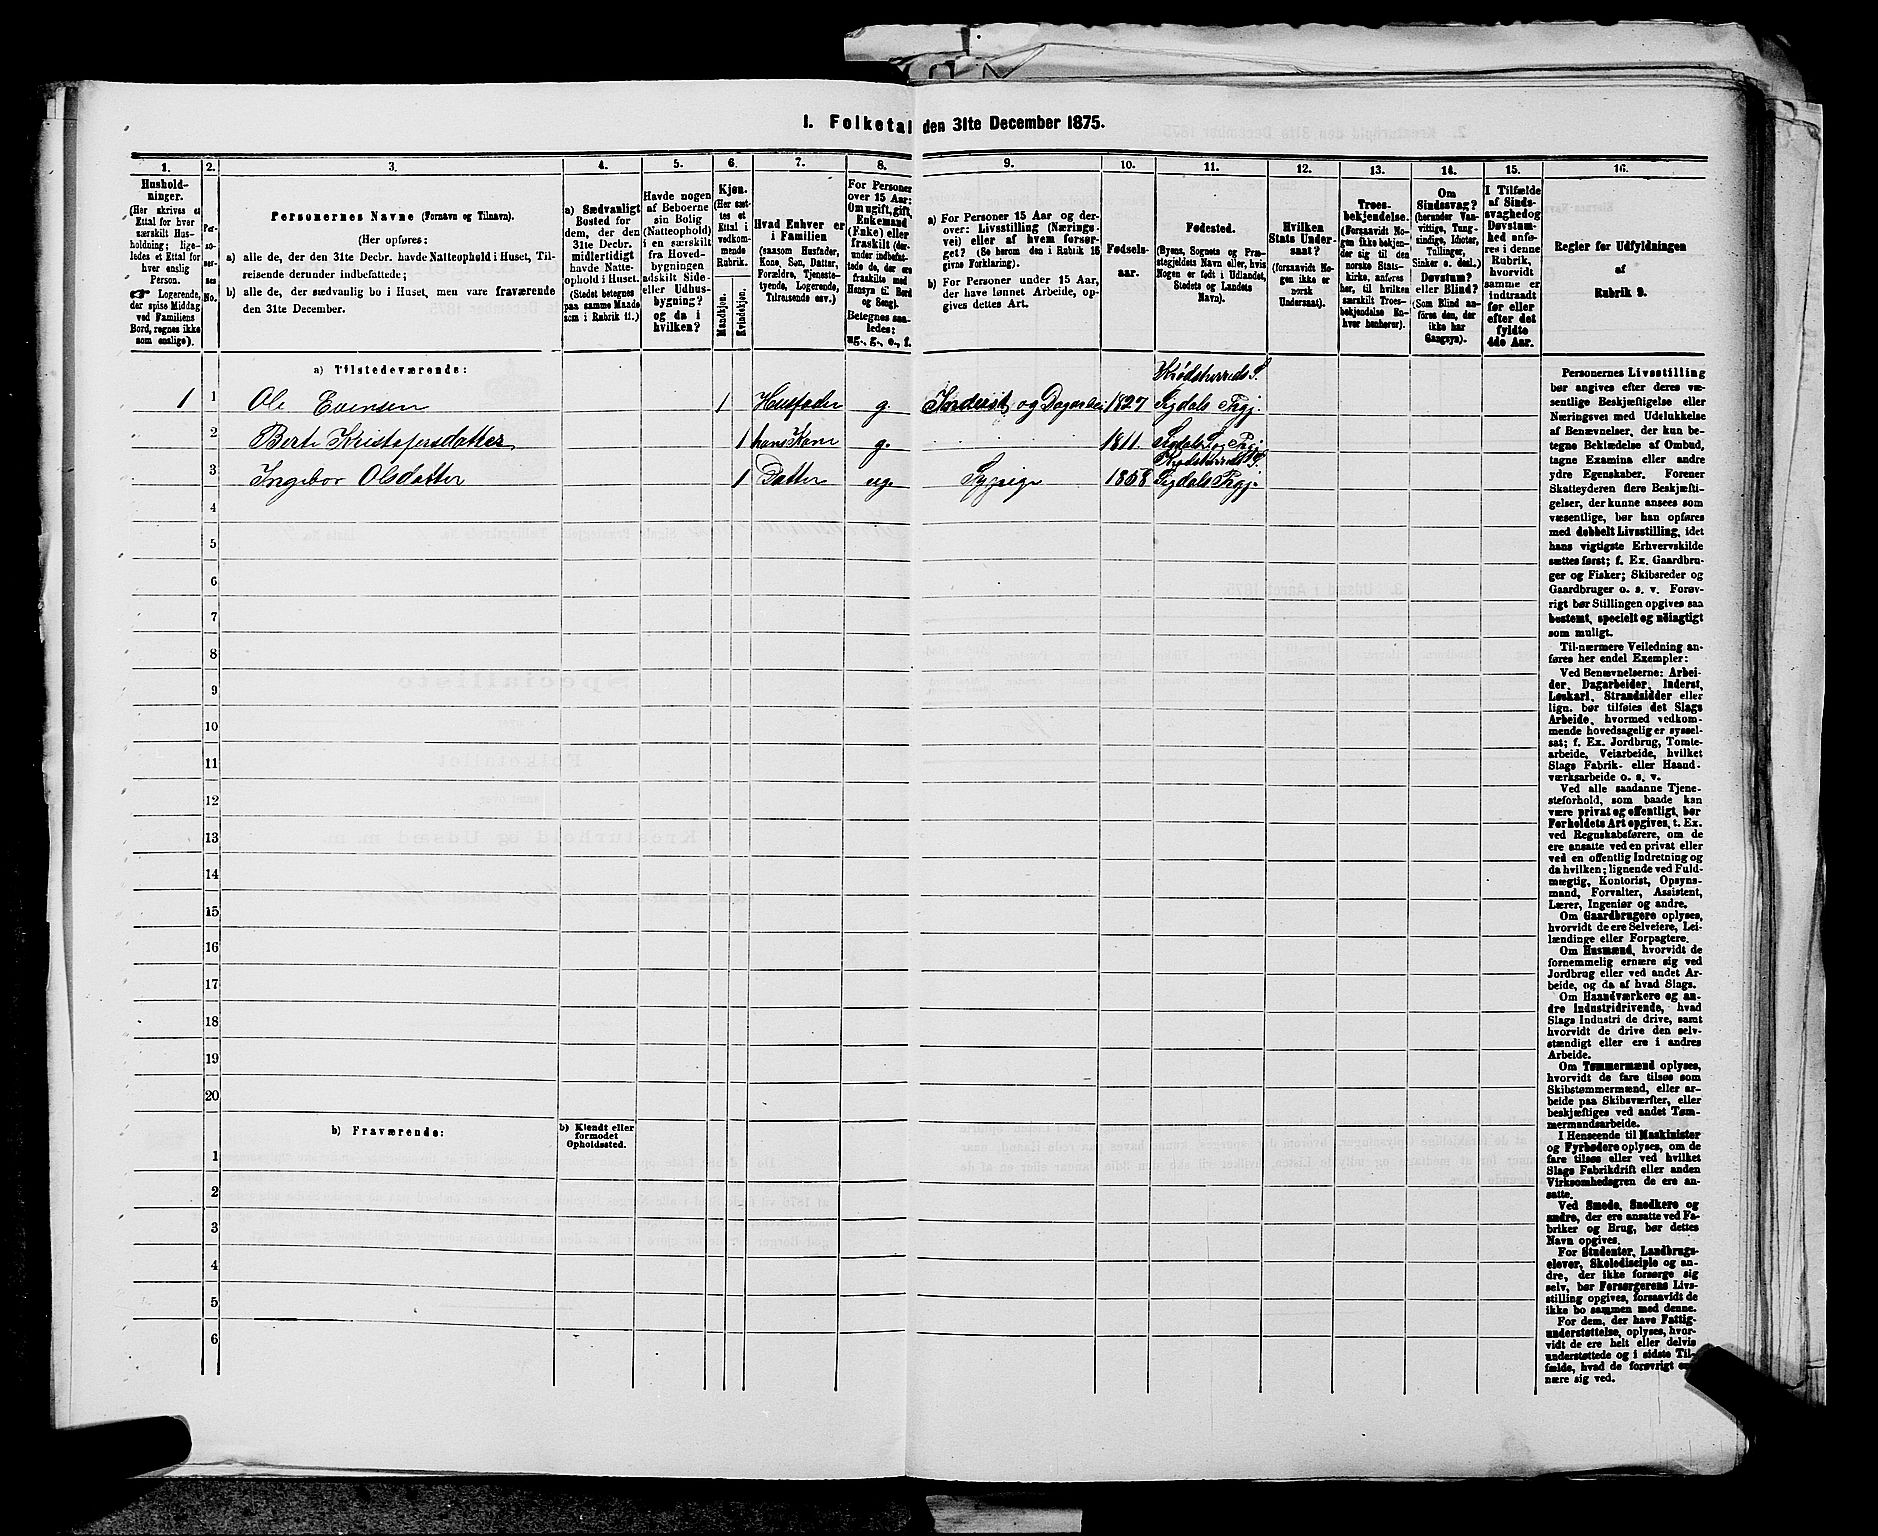 1. Folketal den 31te December 1875.
1.
2.
3.
4.
5.
6.
7.
8.
9.
10.
11.
12.
13.
14.
15.
16.
Hushold-
ninger.
(Her skrives et
Ettal for hver
særskilt Hus-
holdning; lige-
ledes et Ettal for
hver enslig
Person.
☞ Logerende,
der spise Middag
ved Familiens
Bord, regnes ikke
som enslige).
Per-
so-
ner-
nes
No.
Personernes Navne (Fornavn og Tilnavn).
(Her opføres:
a) alle de, der den 31te Decbr. havde Natteophold i Huset, Til-
reisende derunder indbefattede;
b) alle de, der sædvanlig bo i Huset, men vare fraværende
den 31te December.
a) Sædvanligt
Bosted for
dem, der den
31te Decbr.
midlertidigt
havde Natte-
ophold i Huset.
(Stedet betegnes
paa samme Maade
som i Rubrik 11.)
Havde nogen
af Beboerne
sin Bolig
(Natteophold)
i en særskilt
fra Hoved-
bygningen
adskilt Side-
eller Udhus-
bygning?
og da i
hvilken?
Kjøn.
(Her sæt-
tes et
Ettal i
vedkom-
mende
Rubrik.
Mandkjøn.
Kvindekjøn.
Hvad Enhver er
i Familien
(saasom Husfader,
Kone, Søn, Datter,
Forældre, Tjeneste-
tyende, Logerende,
Tilreisende osv.)
For Personer
over 15 Aar:
Om ugift, gift,
Enkemand
(Enke) eller
fraskilt (der-
under indbefat-
tede de, der ere
fraskilte med
Hensyn til Bord
og Seng).
Betegnes saa-
ledes:
ug., g., e., f.
a) For Personer 15 Aar og der-
over: Livsstilling (Nærings-
vei) eller af hvem forsør-
get? (Se herom den i Rubrik 16
givne Forklaring).
b) For Personer under 15 Aar,
der have lønnet Arbeide, op-
gives dettes Art.
Fødsels-
aar.
Fødested.
(Byens, Sognets og Præ-
stegjeldets Navn eller, hvis
Nogen er født i Udlandet,
Stedets og Landets
Navn).
Hvilken
Stats Under-
saat?
(forsaavidt No-
gen ikke er
norsk
Undersaat).
Troes-
bekjendelse.
(Forsaavidt No-
gen ikke bekjen-
der sig til den
norske Stats-
kirke, anføres
her, til hvilken
særskilt Troes-
bekjendelse En-
hver henhører).
Om
Sindssvag?
(herunder Van-
vittige, Tung-
sindige, Idioter,
Tullinger,
Sinker o. desl.)
Døvstum?
eller Blind?
(Som Blind an-
føres den, der
ikke har
Gangsyn).
I Tilfælde
af Sinds-
svaghed og
Døvstum-
hed anfø-
res i denne
Rubrik,
hvorvidt
samme er
indtraadt
før eller
efter det
fyldte
4de Aar.
Regler for Udfyldningen
af
Rubrik 9.
a) Tilstedeværende:
Krødsherreds S.
1 1 Ole Evensen 1 Husfader g. Inderst og Dagarbei 1827 Sigdals Prgj.
2 Berte Kristofersdatter 1 hans Kone g. 1811. Sigdals S. og Prgj.
Krødsherreds S.
3 Ingebor Olsdatter 1 Datter ug. Sypige 1858 Sigdals Prgj.
4
5
6
7
8
9
10
11
12
13
14
15
16
17
18
19
20
b) Fraværende:
b) Kjendt eller
formodet
Opholdssted.
1
2
3
4
5
6
Personernes Livsstilling
bør angives efter deres væ-
sentlige Beskjæftigelse eller
Næringsvei med Udelukkelse
af Benævnelser, der kun be-
tegne Beklædelse af Ombud,
tagne Examina eller andre
ydre Egenskaber. Forener
Skatteyderen flere Beskjæfti-
gelser, der kunne ansees som
væsentlige, bør han opføres
med dobbelt Livsstilling, idet
hans vigtigste Erhvervskilde
sættes først; f. Ex. Gaardbru-
ger og Fisker; Skibsreder og
Gaardbruger o. s. v. Forøv-
rigt bør Stillingen opgives saa
bestemt, specielt og nøiagtigt
som muligt.
Til nærmere Veiledning an-
føres her endel Exempler:
Ved Benævnelserne: Arbei-
der, Dagarbeider, Inderst,
Løskarl, Strandsidder eller
lign. bør tilføies det Slags
Arbeide, hvormed vedkom-
mende hovedsagelig er syssel-
sat; f. Ex. Jordbrug, Tomte-
arbeide, Veiarbeide, hvilket
Slags Fabrik- eller Haand-
værksarbeide o. s. v.
Ved alle saadanne Tjene-
steforhold, som baade kan
være privat og offentligt, bør
Forholdets Art opgives, t. Ex.
ved Regnskabsførere, om de
ere ansatte ved en privat eller
ved en offentlig Indretning og
da hvilken; lignende ved Fuld-
mægtig, Kontorist, Opsyns-
mand, Forvalter, Assistent,
Lærer, Ingeniør og andre.
Om Gaardbrugere oplyses,
hvorvidt de ere Selveiere, Lei-
lændinge eller Forpagtere.
Om Husmænd, hvorvidt de
fornemmelig ernære sig ved
Jordbrug eller ved andet Ar-
beide, og da af hvad Slags.
Om Haandværkere og an-
dre Industridrivende, hvad
Slags Industri de drive, samt
hvorvidt de drive den selv-
stændigt eller ere i andres
Arbeide.
Om Tømmermænd oplyses,
hvorvidt de fare tilsøs som
Skibstømmermænd, eller ar-
beide paa Skibsværfter, eller
beskjæftiges ved andet Tøm-
mermandsarbeide.
I Henseende til Maskinister
og Fyrbødere oplyses, om de
fare tilsøs eller ved hvilket
Slags Fabrikdrift eller anden
Virksomhedsgren de ere an-
satte.
Ved Smede, Snedkere og
andre, der ere ansatte ved Fa-
briker og Brug, bør dettes
Navn opgives.
For Studenter, Landbrugs-
elever, Skoledisciple og an-
dre, der ikke forsørge sig
selv, bør Forsørgerens Livs-
stilling opgives, forsaavidt de
ikke bo sammen med denne.
For dem, der have Fattig-
understøttelse, oplyses, hvor-
vidt de ere helt eller delvis
understøttede og i sidste Til-
fælde, hvad de forøvrigt er-
nære sig ved.